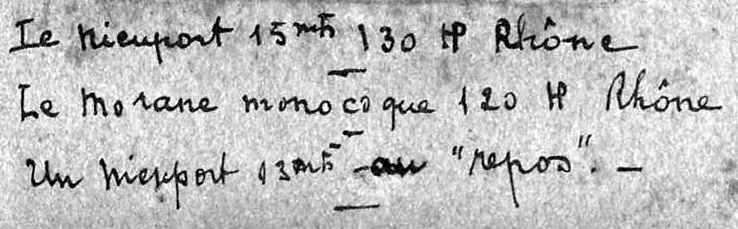 Le Nieuport 15 mts 130 HP Rhône
Le Morane monocoque 120 HP Rhône
Un Nieuport 13 mts au "repos". –